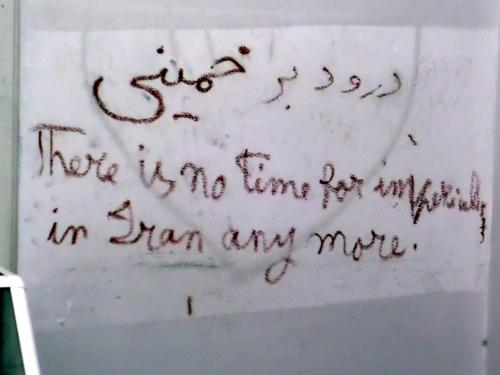 درود بر خمینی
There is no time for
in Iran any more.